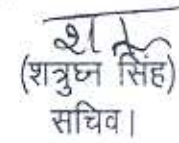 (शत्रुघ्न सिंह)
सचिव।